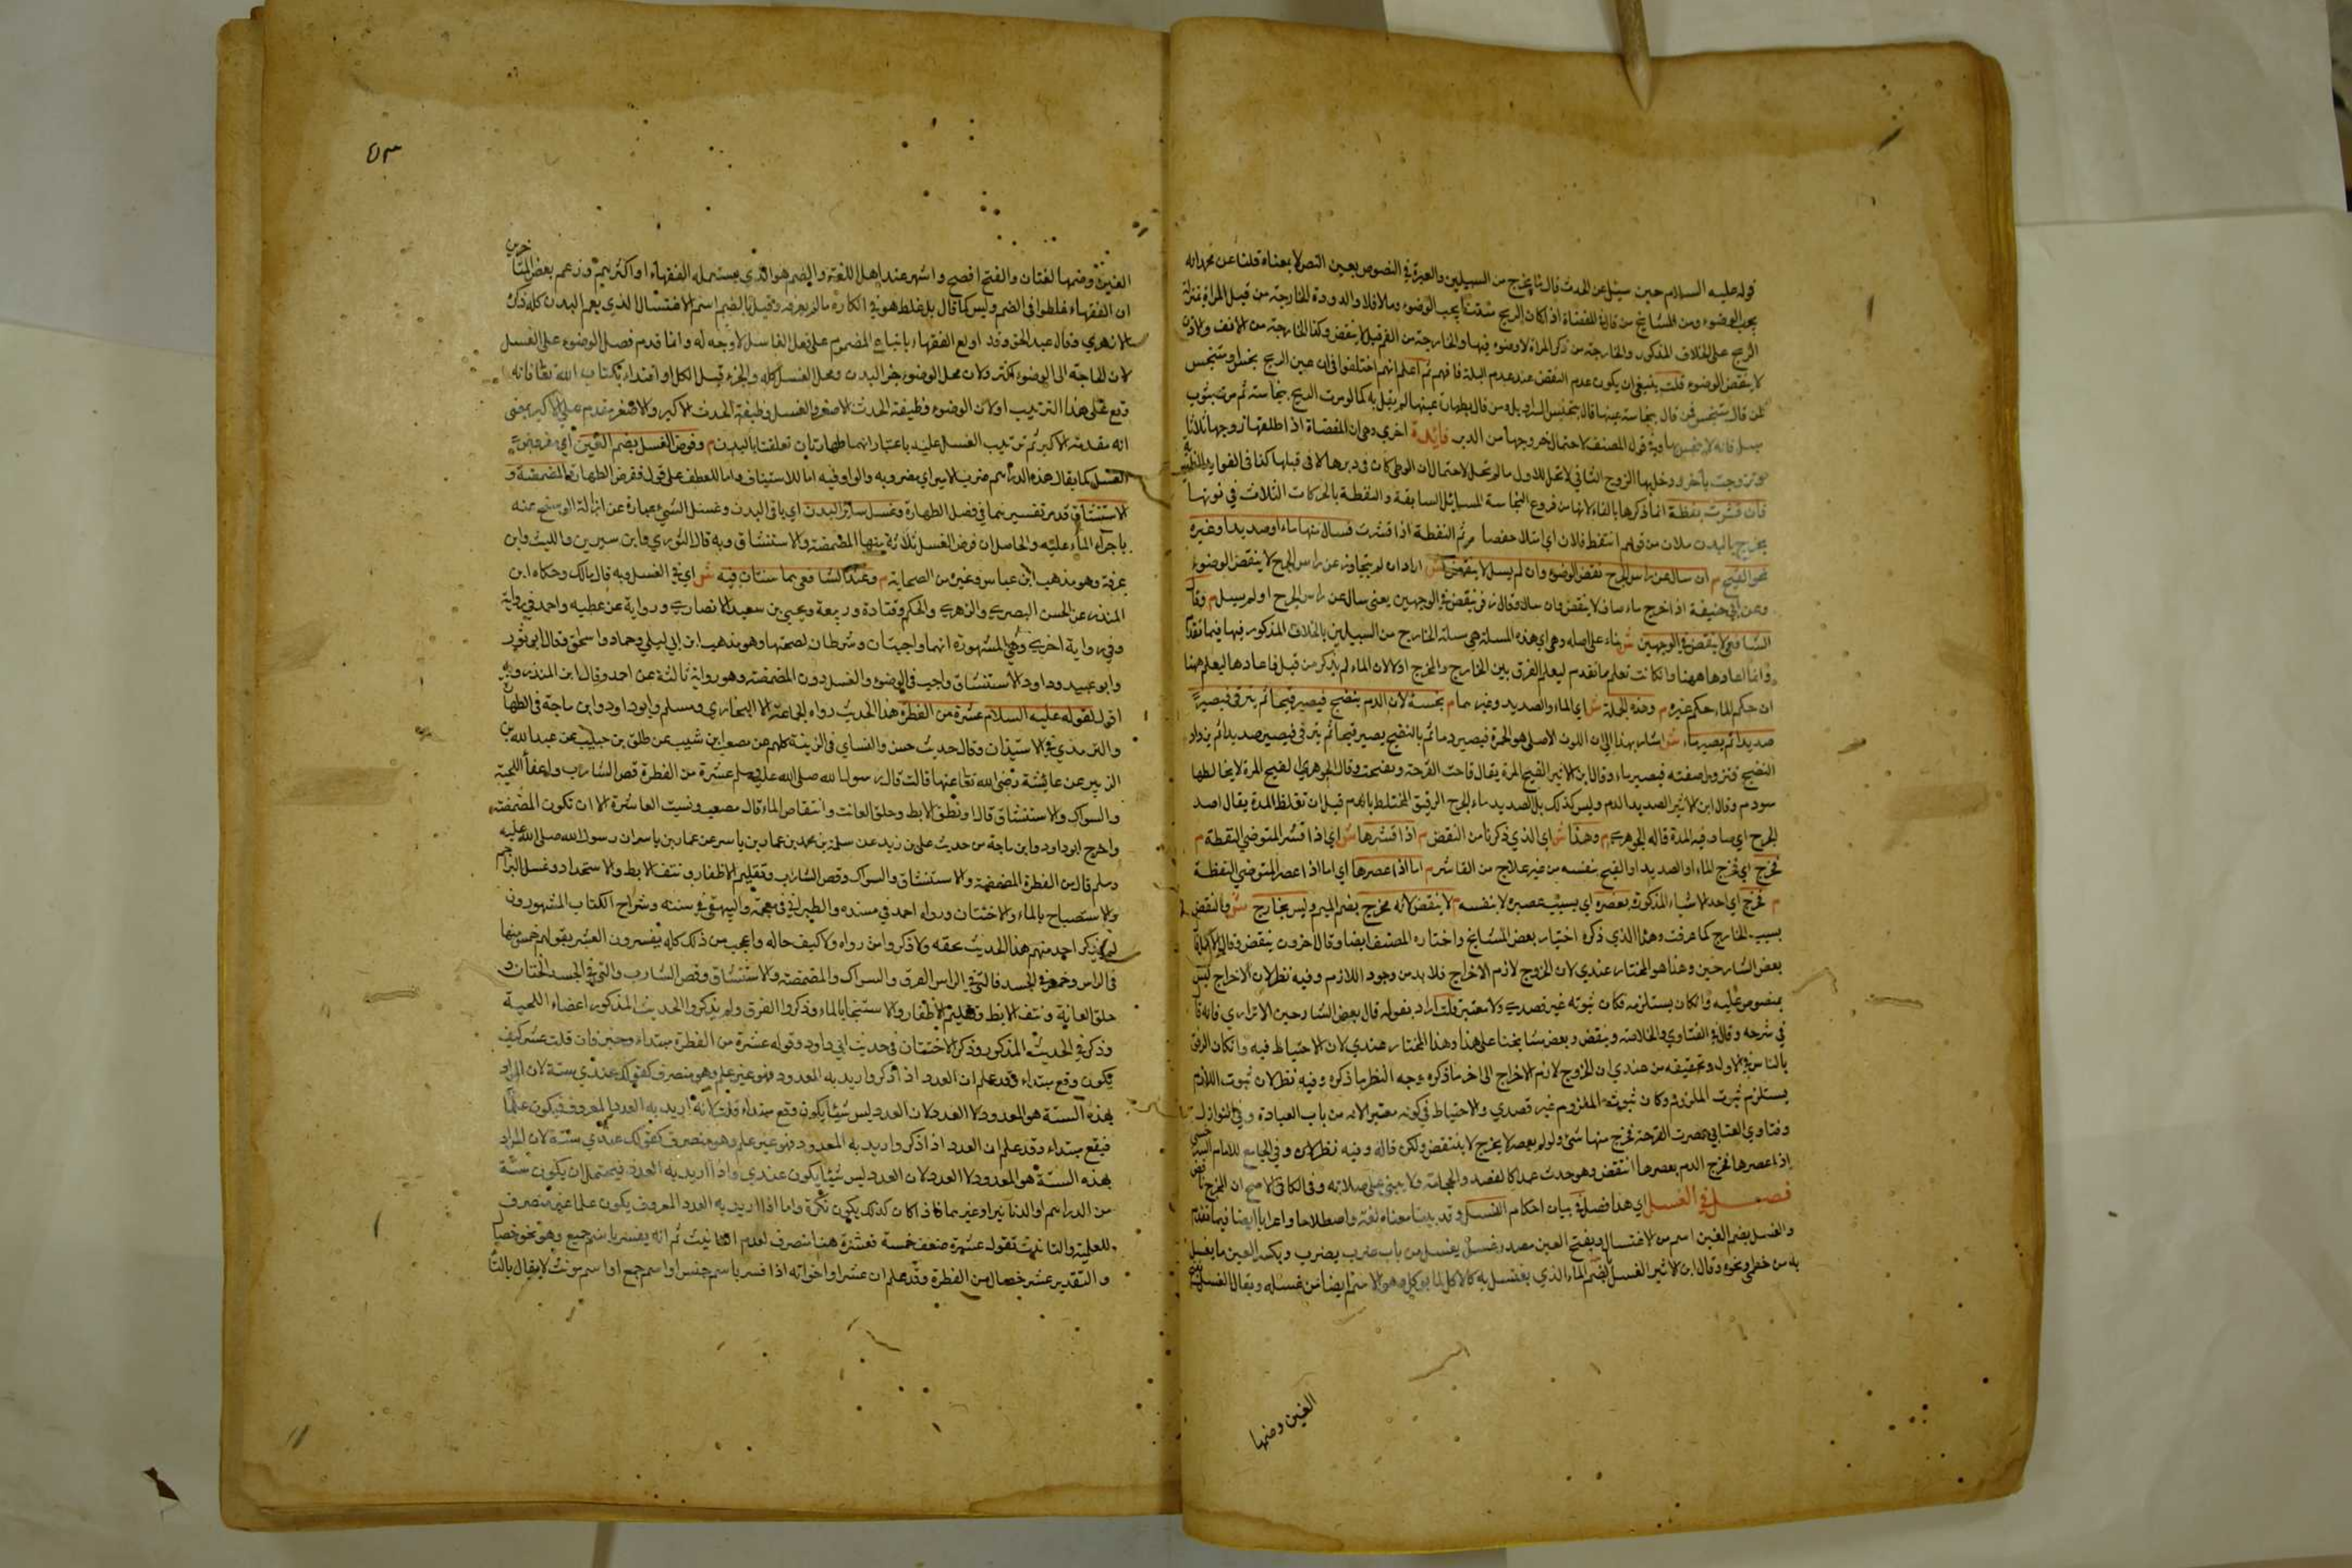 قوله عليه السلام حين سئل عن الحدث قال ما يخرج من السبيلين والعبرة في النصوص بعين النص لا بمعناه قلنا عن محمد انه
يجب الوضوء ومن المشايخ من قال في المفضاة اذا كان الريح منتنا يجب الوضوء وما لا فلا والدودة الخارجة من قبل المراة بمنزلة
الريح على الخلاف المذكور والخارجة من ذكر المراة لا وضوء فيها والخارجة من الفم قيل لا ينقض وكذا الخارجة من الانف والاذن
لا ينقض الوضوء قلت ينبغي ان يكون عدم النقض عند عدم البلة فافهم ثم اعلم انهم اختلفوا في ان عين الريح نجس او متنجس
فمن قال متنجس فمن قال بنجاسة عينها قال بتنجس السراويل ومن قال بطهارة عينها لم يقل به كما لو مرت الريح بنجاسة ثم مرت بثوب
مبتل فانه لا يتنجس بها وفي قول المصنف لاحتمال خروجها من الدبر فائدة اخرى وهي ان المفضاة اذا طلقها زوجها ثلاثا
وتزوجت بآخر ودخل بها الزوج الثاني لا تحل للاول ما لم تحبل لاحتمال ان الوطئ كان في دبرها لا في قبلها كذا في الفوايد الظهيرية
فان قشرت نفطة انما ذكرها بالفاء لانها من فروع النجاسة المسايل السابقة والنفطة بالحركات الثلاث في نونها
يخرج باليدن ملآن من قولهم انتفط فلان اي امتلا غضبا م ثم النفطة اذا قشرت فسال منها ماء او صديد او غيره
نحو القيح م ان سال عن راس الجرح نقض الوضوء وان لم يسل لا ينقض ش اراد ان لم يتجاوز عن راس الجرح لا ينقض الوضوء
وعن ابي حنيفة اذا خرج ماء صاف لا ينقض وان سال وقال زفر ينقض في الوجهين يعني سال عن راس الجرح او لم يسيل م وقال
الشافعي لا ينقض في الوجهين ش بناء على اصله وهي اي هذه المسلة هي مسلة الخارج من السبيلين بالخلاف المذكور فيها فيما تقدم
وانما اعادها ههنا وان كانت تعلم مما تقدم ليعلم الفرق بين الخارج والمخرج او لان الماء لم يذكر من قبل فاعادها ليعلم ههنا
ان حكم الماء حكم غيره م وهذه الجملة ش اي الماء والصديد وغيرهما م نجسة لان الدم ينضج فيصير قيحا ثم يزداد فيصير
صديدا ثم يصير ماء ش اشار بهذا الى ان اللون الاصلي هو الحمرة فيصير دما ثم بالنضيج يصير قيحا ثم يترقى فيصير صديدا ثم يزداد
النضيج فتزول صفته فيصير ماء وقال ابن الاثير القيح المدة يقال قاحت القرحة وتقيحت وقال الجوهري القيح المدة لا يخالطها
سودم وقال ابن الاثير الصديد الدم وليس كذلك بل الصديد ماء الجرح الرقيق المختلط بالدم قبل ان تغلظ المدة يقال اصد
الجرح اي صار فيه المدة قاله الجوهري م وهذا ش اي الذي ذكرنا من النقض م اذا قشرها ش اي اذا قشر المتوضي النفطة م
فخرج اي فخرج الماء او الصديد او القيح بنفسه من غير علاج من القاشر م اما اذا عصرها اي اما اذا عصر المتوضي النفطة
م فخرج اي احد الاشياء المذكورة بعصره اي بسبب عصره لا بنفسه م لا ينقض لانه مخرج بضم الميم وليس بخارج ش والنقض
بسبب الخارج كما عرفت وهذا الذي ذكره اختيار بعض المشايخ واختاره المصنف ايضا وقال آخرون ينقض وقال الاكمل
بعض الشارحين وهذا هو المختار عندي لان الخروج لازم الاخراج فلا بد من وجود اللازم وفيه نظر لان الاخراج ليس
بمنصوص عليه وان كان يستلزمه فكان ثبوته غير قصدي ولا معتبر قلت اراد بقوله قال بعض الشارحين الاترازي فانه قال
في شرحه وقال في الفتاوي والخلاصة وينقض وبعض مشايخنا على هذا وهذا المختار عندي لان الاحتياط فيه وان كان الرفق
بالناس في الاول وتحقيقه من عندي ان الخروج لازم الاخراج الى اخر ما ذكره وجه النظر ما ذكره وفيه نظر لان ثبوت اللازم
يستلزم ثبوت الملزوم وكان ثبوت الملزوم غير قصدي والاحتياط في كونه معتبرا لانه من باب العبادة وفي النوازل
وفتاوي العتابي عصرت القرحة فخرج منها شئ ولو لم يعصر لا يخرج لا ينتقض ولكن قال وفيه نظر لان وفي الجامع للامام السرخسي
اذا عصرها فخرج الدم بعصرها انتقض وهو حدث عمدا كالفصد والحجامة ولا يبني على صلاته وفي الكافي الاصح ان المخرج ناقض
فصل في الغسل اي هذا فصل في بيان احكام الغسل وقد بينا معناه لغة واصطلاحا واعرابا ايضا فيما تقدم
والغسل بضم الغين اسم من الاغتسال وبفتح الغين مصدر غسل يغسل من باب ضرب يضرب وبكسر الغين ما يغسل
به من خطمي ونحوه وقال ابن الاثير الغسل بالضم الماء الذي يغتسل به كالاكل لما يوكل وهو الاسم ايضا من غسلته ويقال الغسل
الغين وضمها
٥٣
الغين وضمها لغتان والفتح افصح واشهر عند اهل اللغة والضم هو الذي يستعمله الفقهاء او اكثرهم وزعم بعض المتاخرين
ان الفقهاء غلطوا في الضم وليس كما قال بل غلط هو في انكاره ما لم يعرفه وقيل بالضم اسم الاغتسال الذي يعم البدن كله ذكره
الازهري وقال عبد الحق وقد اولع الفقهاء باتباع المضموم على فعل الغاسل لا وجه له وانما قدم فصل الوضوء على الغسل
لان الحاجة الى الوضوء اكثر ولان محل الوضوء جزء البدن ومحل الغسل كله والجزء قبل الكل او اقتداء بكتاب الله تعالى فانه
وقع على هذا الترتيب اولان الوضوء وظيفة الحدث الاصغر والغسل وظيفة الحدث الاكبر والاصغر يقدم على الاكبر بمعنى
انه مقدمة الاكبر ثم ترتيب الغسل عليه باعتبار انهما طهارتان تعلقتا بالبدن م وفرض الغسل بضم الغين اي مفروض
الغسل كما يقال هذه الدراهم ضرب الامير اي مضروبه والواو فيه اما للاستيناف واما للعطف على قوله ففرض الطهارة المضمضة و
الاستنشاق قد مر تفسيرهما في فصل الطهارة وغسل سائر البدن اي باقي البدن وغسل الشئ عبارة عن ازالة الوسخ عنه
باجراء الماء عليه والحاصل ان فرض الغسل ثلاثة منها المضمضة والاستنشاق وبه قال الثوري وابن سيرين والليث وابن
عرفة وهو مذهب ابن عباس وغيره من الصحابة م وعند الشافعي هما سنتان فيه ش اي في الغسل وبه قال مالك وحكاه ابن
المنذر عن الحسن البصري والزهري والحكم وقتادة وربيعة ويحيى بن سعيد الانصاري ورواية عن عطيه واحد في رواية
وفي رواية اخرى وهي المشهورة انهما واجبتان وشرطان لصحتها وهو مذهب ابن ابي ليلى وحماد واسحق وقال ابو ثور
وابو عبيد وداود الاستنشاق واجب في الوضوء والغسل دون المضمضة وهو رواية ثالثة عن احمد وقال ابن المنذر وبه
اقول لقوله عليه السلام عشرة من الفطرة هذا الحديث رواه الجماعة الا البخاري ومسلم وابو داود وابن ماجة في الطهارة
والترمذي في الاستيذان وقال حديث حسن والنساي في الزينة كلهم عن مصعب ابن شيبه عن طلق بن حبيب عن عبد الله بن
الزبير عن عايشة رضي الله تعالى عنها قالت قال رسول الله صلى الله عليه وسلم عشرة من الفطرة قص الشارب واعفا اللحية
والسواك والاستنشاق قال ونطق الابط وحلق العانة وانتقاص الماء قال مصعب ونسيت العاشرة الا ان تكون المضمضة
واخرج ابو داود وابن ماجة من حديث علي بن زيد عن سلمة بن محمد بن عمار بن ياسر عن عمار بن ياسر ان رسول الله صلى الله عليه
وسلم قال من الفطرة المضمضة والاستنشاق والسواك وقص الشارب وتقليم الاظفار ونتف الابط والاستحداد وغسل البراجم
والاستصباح بالماء والاختتان ورواه احمد في مسنده والطبراني في معجمه والبيهقي في سننه وشراح الكتاب المشهورون
لم يذكر احد منهم هذا الحديث بحقه ولا ذكروا من رواه ولا كيف حاله واعجب من ذلك كله يفسرون العشر بقولهم خمس منها
في الراس وخمس في الجسد فالتي في الراس الفرق والسواك والمضمضه والاستنشاق وقص الشارب والتي في الجسد الختان و
حلق العانة ونتف الابط وتقليم الاظفار والاستنجا بالماء وذكروا الفرق ولم يذكروا الحديث المذكور اعفاء اللحية
وذكر في الحديث المذكور وذكر الاختتان في حديث ابي داود وقوله عشرة من الفطرة مبتداء وخبر فان قلت عشر كيف
يكون وقع مبتداء وقد علم ان العدد اذا ذكر واريد به المعدود فهو غير علم وهو منصرف كقولك عندي ستة لان المراد
بهذه الستة هو المعدود لا العدد لان العدد ليس شيئا يكون وقع مبتداء قلت لانه اريد به العدد المعروف فيكون علما
فيقع مبتداء وقد علم ان العدد اذا ذكر واريد به المعدود فهو غير علم وهو منصرف كقولك عندي ستة لان المراد
بهذه الستة هو المعدود لا العدد لان العدد ليس شيئا يكون عندي واذا اريد به العدد فيحتمل ان يكون ستة
من الدراهم او الدنانير او غيرهما فاذا كان كذلك يكون نكرة واما اذا اريد به العدد المعروف يكون علما غير منصرف
للعلمية والتانيث تقول عشرة ضعف خمسة فعشرة هنا منصرف لعدم التانيث ثم انه يفسر باسم جمع وهو نحو خصال
والتقدير عشر خصال من الفطرة وقد علم ان عشرا واخواته اذا فسر باسم جنس او اسم جمع او اسم مونث لا يقال بالتا